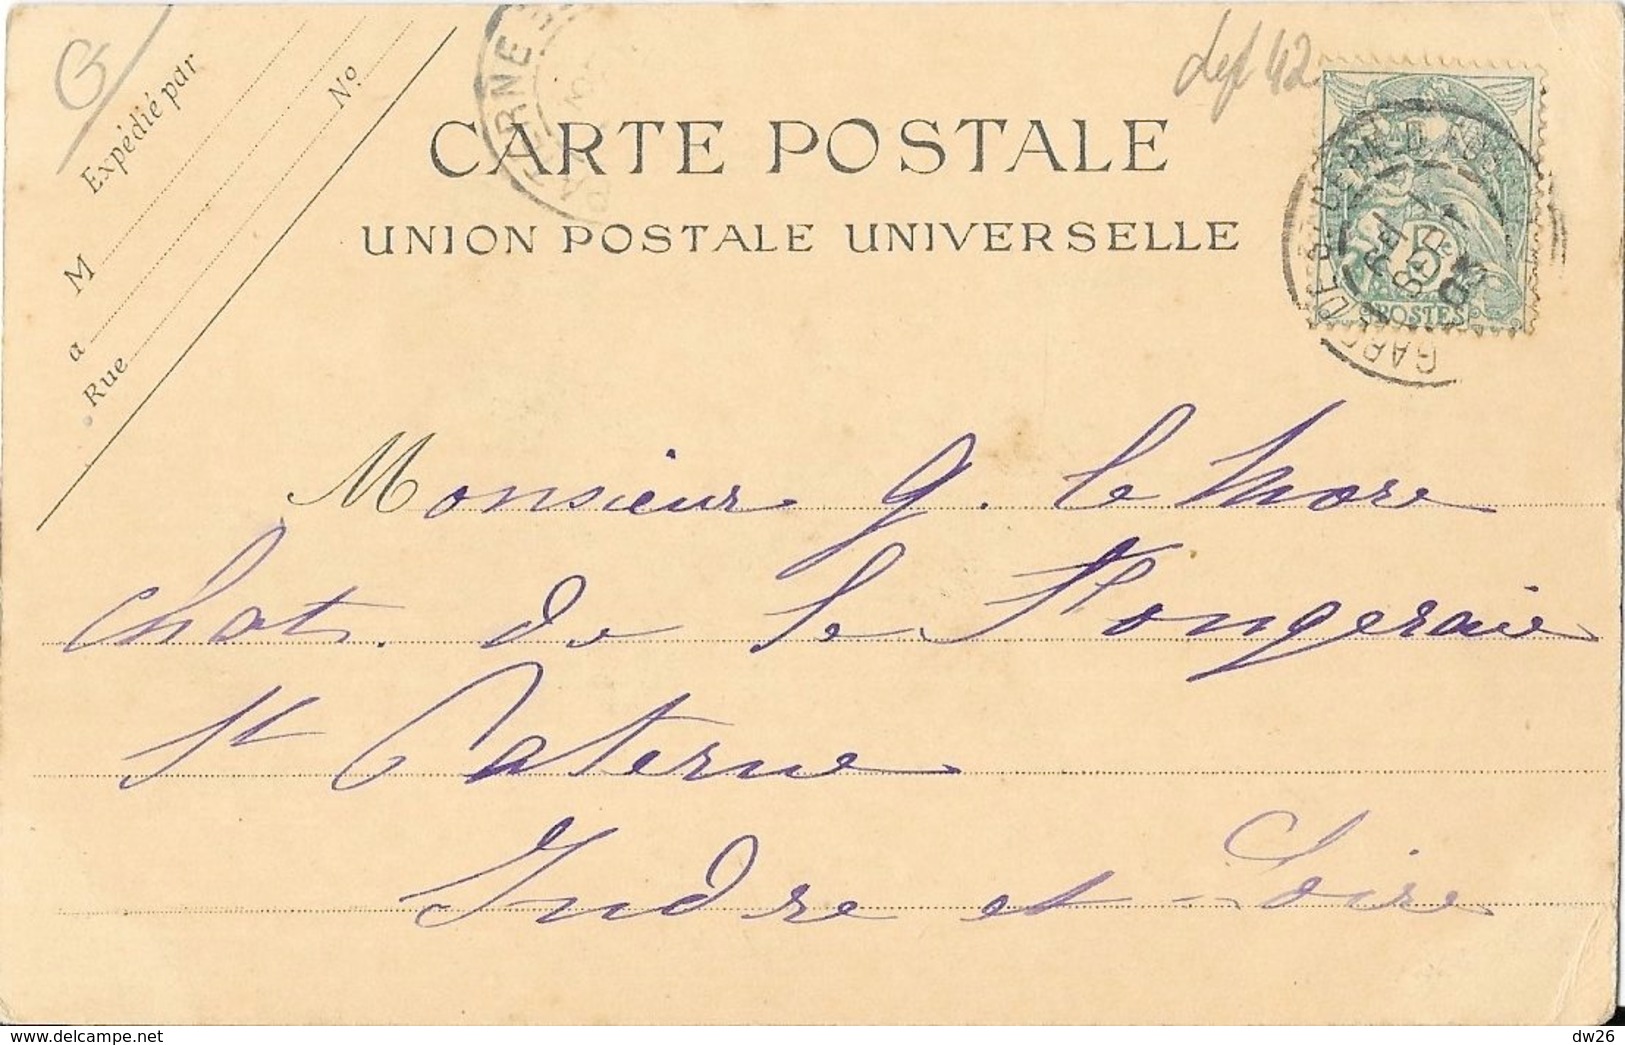 G
Expédié par
M
a
Rue
No
dept 42
CARTE POSTALE
UNION POSTALE UNIVERSELLE
5c
POSTES
03
Monsieur G. le More
Chat. de le Fongeraie
St Caterne
Indre et-Loire
dw26